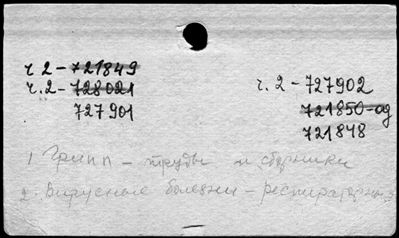 ч.2 - 721849
ч.2 - 728021
727901
ч.2 - 727902
721850-ад
721848
1 Грипп - труды и сборники
2. Вирусные болезни - респираторные